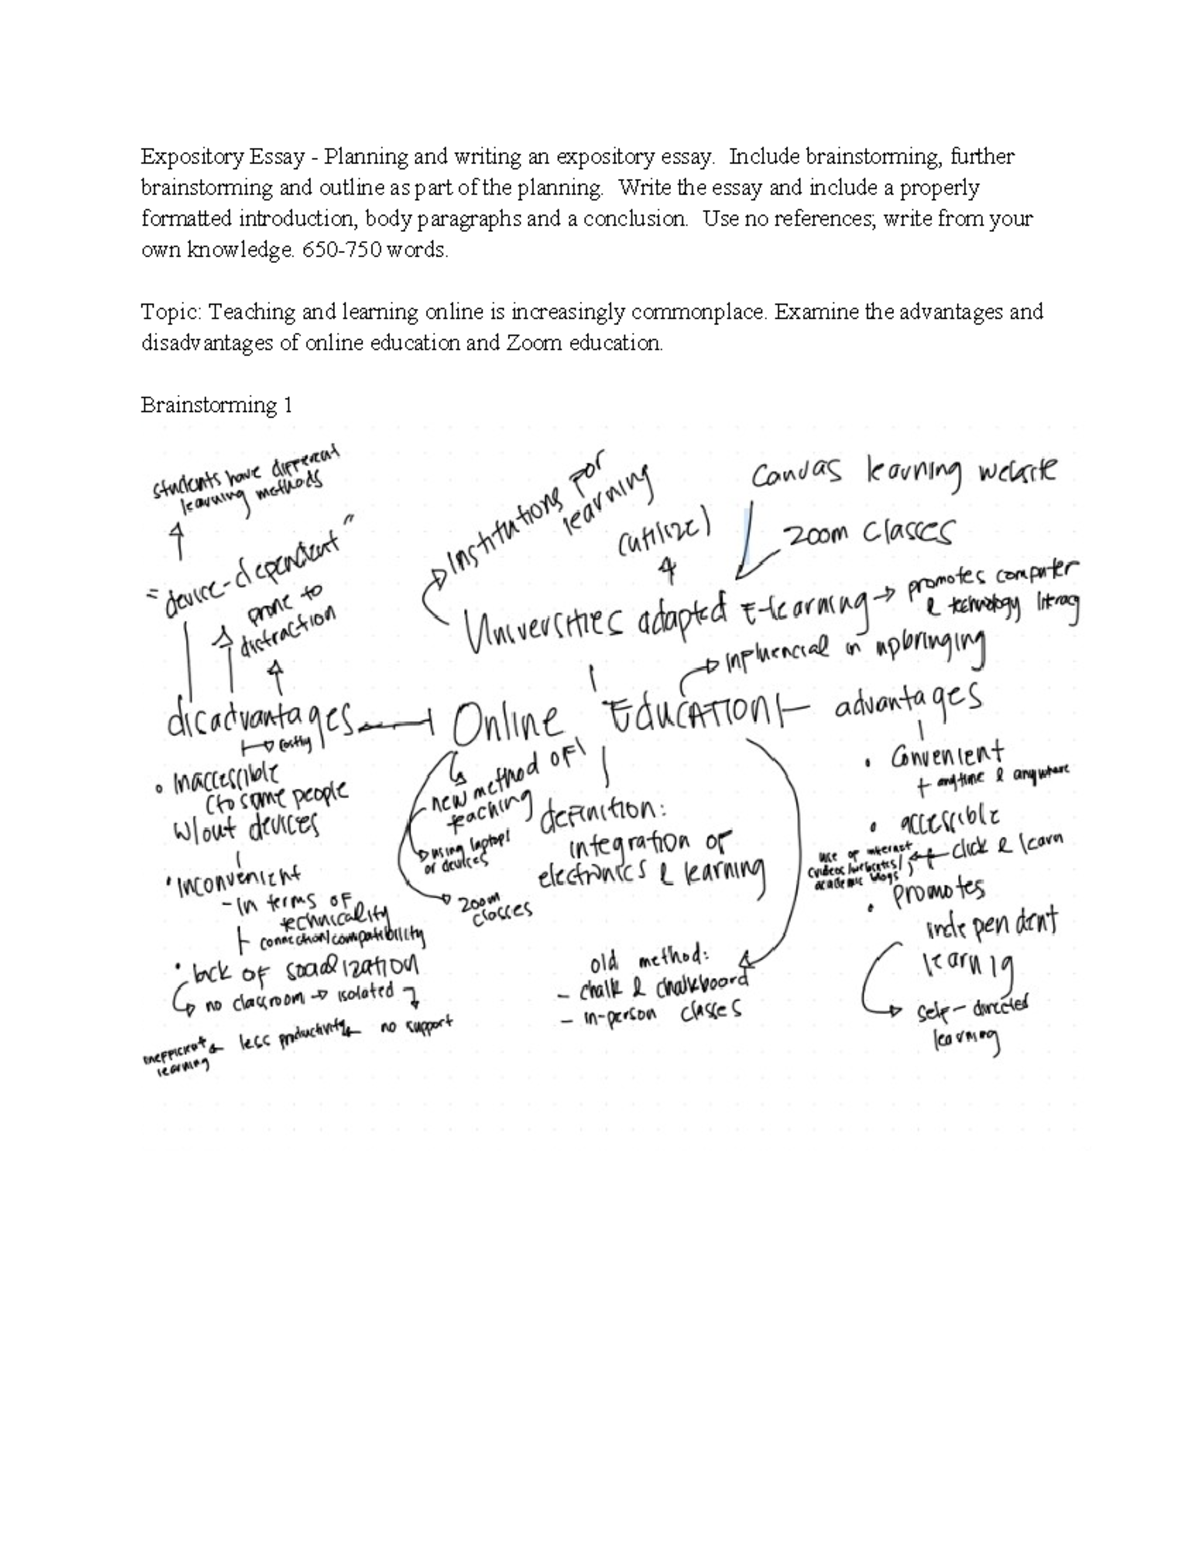 Expository Essay - Planning and writing an expository essay.  Include brainstorming, further
brainstorming and outline as part of the planning.  Write the essay and include a properly
formatted introduction, body paragraphs and a conclusion.  Use no references; write from your
own knowledge. 650-750 words.
Topic: Teaching and learning online is increasingly commonplace. Examine the advantages and
disadvantages of online education and Zoom education.
Brainstorming 1
students have different
learning methods
"device-dependent"
prone to
distraction
disadvantages
costly
• Inaccessible
(to some people
w/out devices
• Inconvenient
- in terms of
technicality
connection/compatibility
• lack of socialization
no classroom → isolated
no support
less productivity
inefficient
learning
Institutions for
learning
(utilize)
Canvas learning website
Zoom classes
Universities adapted E-learning → promotes computer
& technology literacy
influencial in upbringing
Online EDUCATION
new method of
teaching
using laptops
or devices
zoom
classes
definition:
integration of
electronics & learning
old method:
- chalk & chalkboard
- in-person classes
advantages
• Convenient
+ anytime & anywhere
• accessible
click & learn
use of internet
(videos/websites/
academic blogs)
• promotes
independent
learnig
self-directed
learning